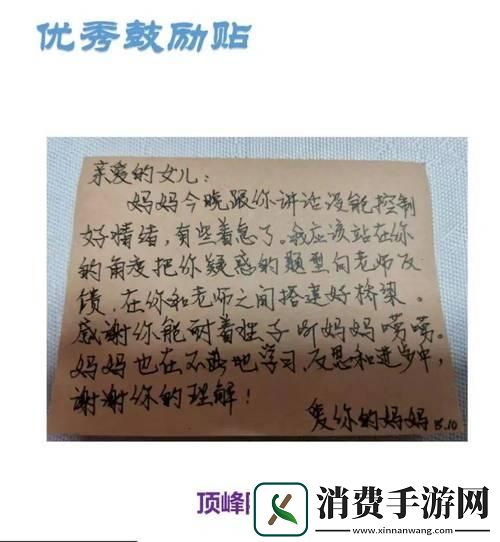 优秀鼓励贴
亲爱的女儿：
妈妈今晚跟你讲话没能控制
好情绪，有些着急了。我应该站在你
的角度把你疑惑的题型向老师反
馈，在你和老师之间搭建好桥梁。
感谢你能耐着性子听妈妈唠唠。
妈妈也在不断地学习、反思和进步中，
谢谢你的理解！
爱你的妈妈 5.10
顶峰
消费手游网
www.xinnanwang.com